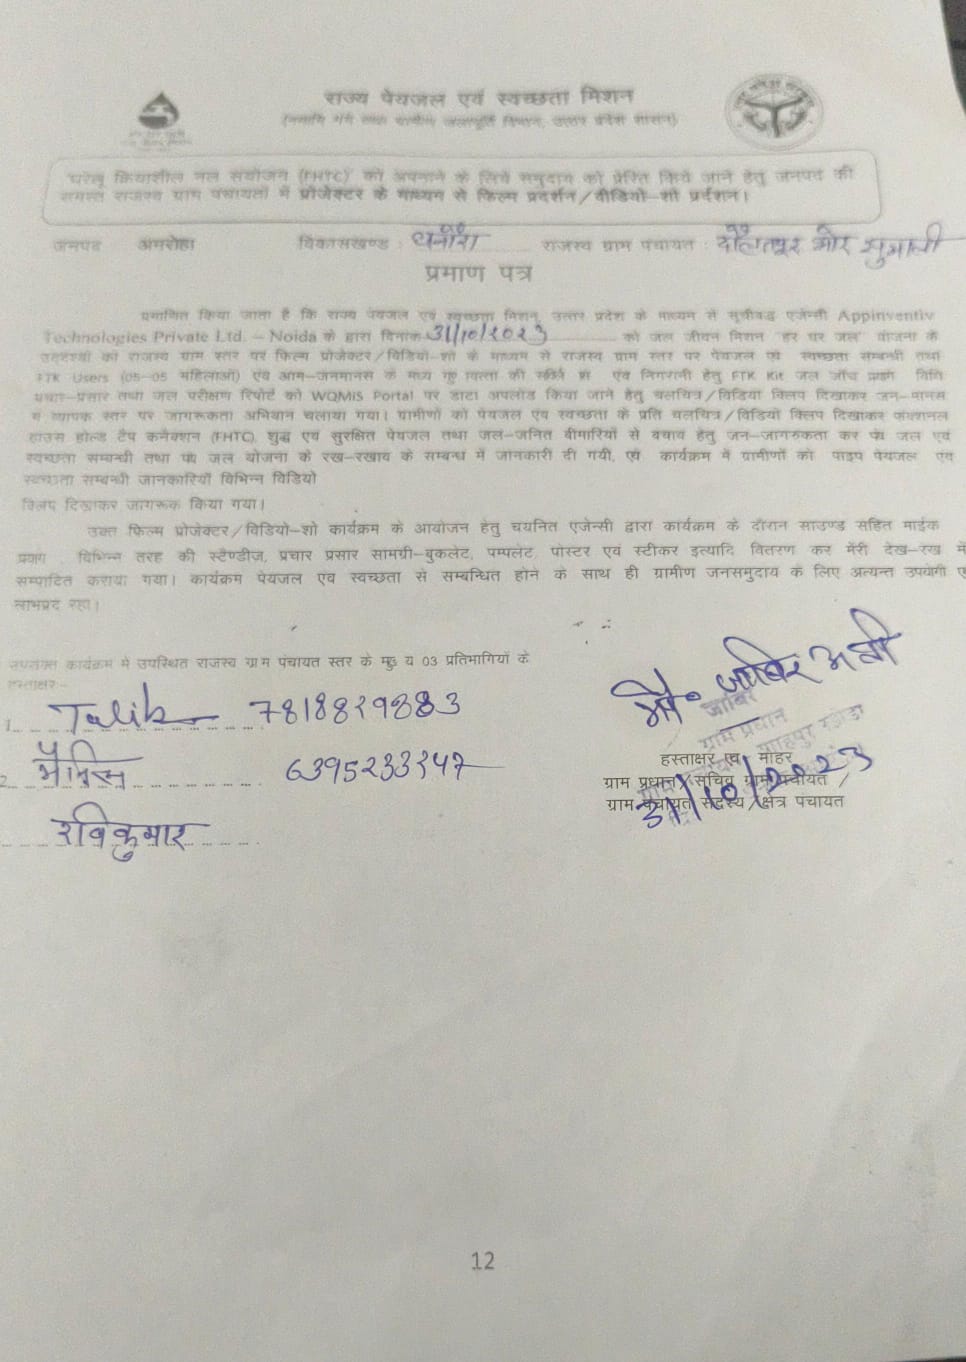 राज्य पेयजल एवं स्वच्छता मिशन
(नमामि गंगे तथा ग्रामीण जलापूर्ति विभाग, उत्तर प्रदेश शासन)
'घरेलू क्रियाशील नल संयोजन (FHTC)' को अपनाने के लिये समुदाय को प्रेरित किये जाने हेतु जनपद की
समस्त राजस्व ग्राम पंचायतों में प्रोजेक्टर के माध्यम से फिल्म प्रदर्शन/वीडियो-शो प्रर्दशन।
जनपद अमरोहा विकासखण्ड : धनौरा राजस्व ग्राम पंचायत : दौलतपुर
प्रमाण पत्र
प्रमाणित किया जाता है कि राज्य पेयजल एवं स्वच्छता मिशन, उत्तर प्रदेश के माध्यम से सूचीबद्ध एजेन्सी Appinventiv
Technologies Private Ltd. – Noida के द्वारा दिनांक 31/10/2023 को जल जीवन मिशन "हर घर जल" योजना के
उददेश्यों को राजस्व ग्राम स्तर पर फिल्म प्रोजेक्टर/विडियो-शो के माध्यम से राजस्व ग्राम स्तर पर पेयजल एवं स्वच्छता सम्बन्धी तथा
FTK Users (05-05 महिलाओं) एवं आम-जनमानस के मध्य एवं निगरानी हेतु FTK Kit जल जाँच विधि
प्रचार-प्रसार तथा जल परीक्षण रिपोर्ट को WQMIS Portal पर डाटा अपलोड किया जाने हेतु चलचित्र/विडियो क्लिप दिखाकर जन-मानस
में व्यापक स्तर पर जागरूकता अभियान चलाया गया। ग्रामीणों को पेयजल एवं स्वच्छता के प्रति चलचित्र/विडियों क्लिप दिखाकर फंक्शनल
हाउस होल्ड टैप कनैक्शन (FHTC), शुद्ध एवं सुरक्षित पेयजल तथा जल-जनित बीमारियों से बचाव हेतु जन-जागरुकता कर जल एवं
स्वच्छता सम्बन्धी तथा जल योजना के रख-रखाव के सम्बन्ध में जानकारी दी गयी, एवं कार्यक्रम में ग्रामीणों को पाइप पेयजल एवं
स्वच्छता सम्बन्धी जानकारियाँ विभिन्न विडियो
क्लिप दिखाकर जागरूक किया गया।
उक्त फिल्म प्रोजेक्टर/विडियो-शो कार्यक्रम के आयोजन हेतु चयनित एजेन्सी द्वारा कार्यक्रम के दौरान साउण्ड सहित माईक
विभिन्न तरह की स्टैण्डीज, प्रचार प्रसार सामग्री-बुकलेट, पम्पलेट, पोस्टर एवं स्टीकर इत्यादि वितरण कर मेरी देख-रख में
सम्पादित कराया गया। कार्यक्रम पेयजल एवं स्वच्छता से सम्बन्धित होने के साथ ही ग्रामीण जनसमुदाय के लिए अत्यन्त उपयोगी ए
लाभप्रद रहा।
उपरोक्त कार्यक्रम में उपस्थित राजस्व ग्राम पंचायत स्तर के 03 प्रतिभागियों के
हस्ताक्षर:-
1. Talib 7818829883
2. 6395233247
रविकुमार
मौ० जाबिर अली
जाबिर
ग्राम प्रधान
हस्ताक्षर एवं मोहर
ग्राम प्रधान/सचिव ग्राम पंचायत/
ग्राम पंचायत सदस्य/क्षेत्र पंचायत
31/10/2023
12